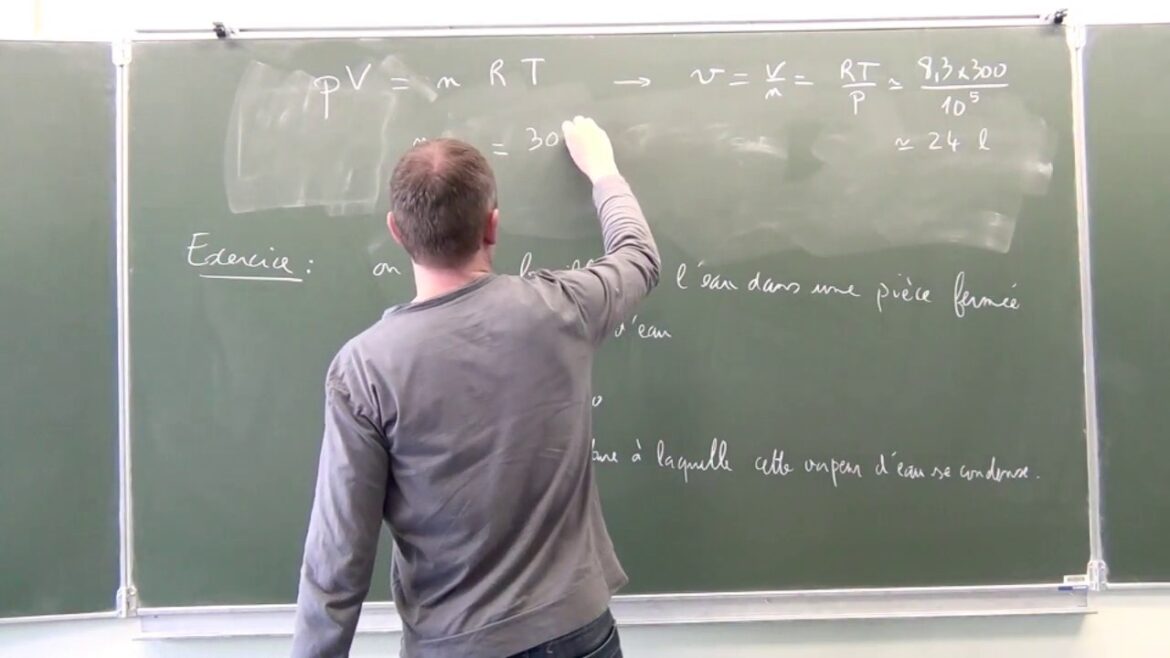 pV = n R T → v = V/n = RT/P ≃ 8,3 x 300 / 10⁵
= 30 ≃ 24 l
Exercice : on l'eau dans une pièce fermée
d'eau
à laquelle cette vapeur d'eau se condense.